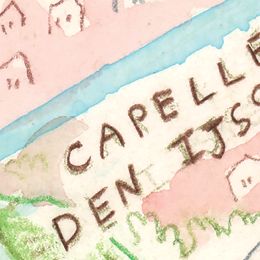 CAPELLE
DEN IJSS